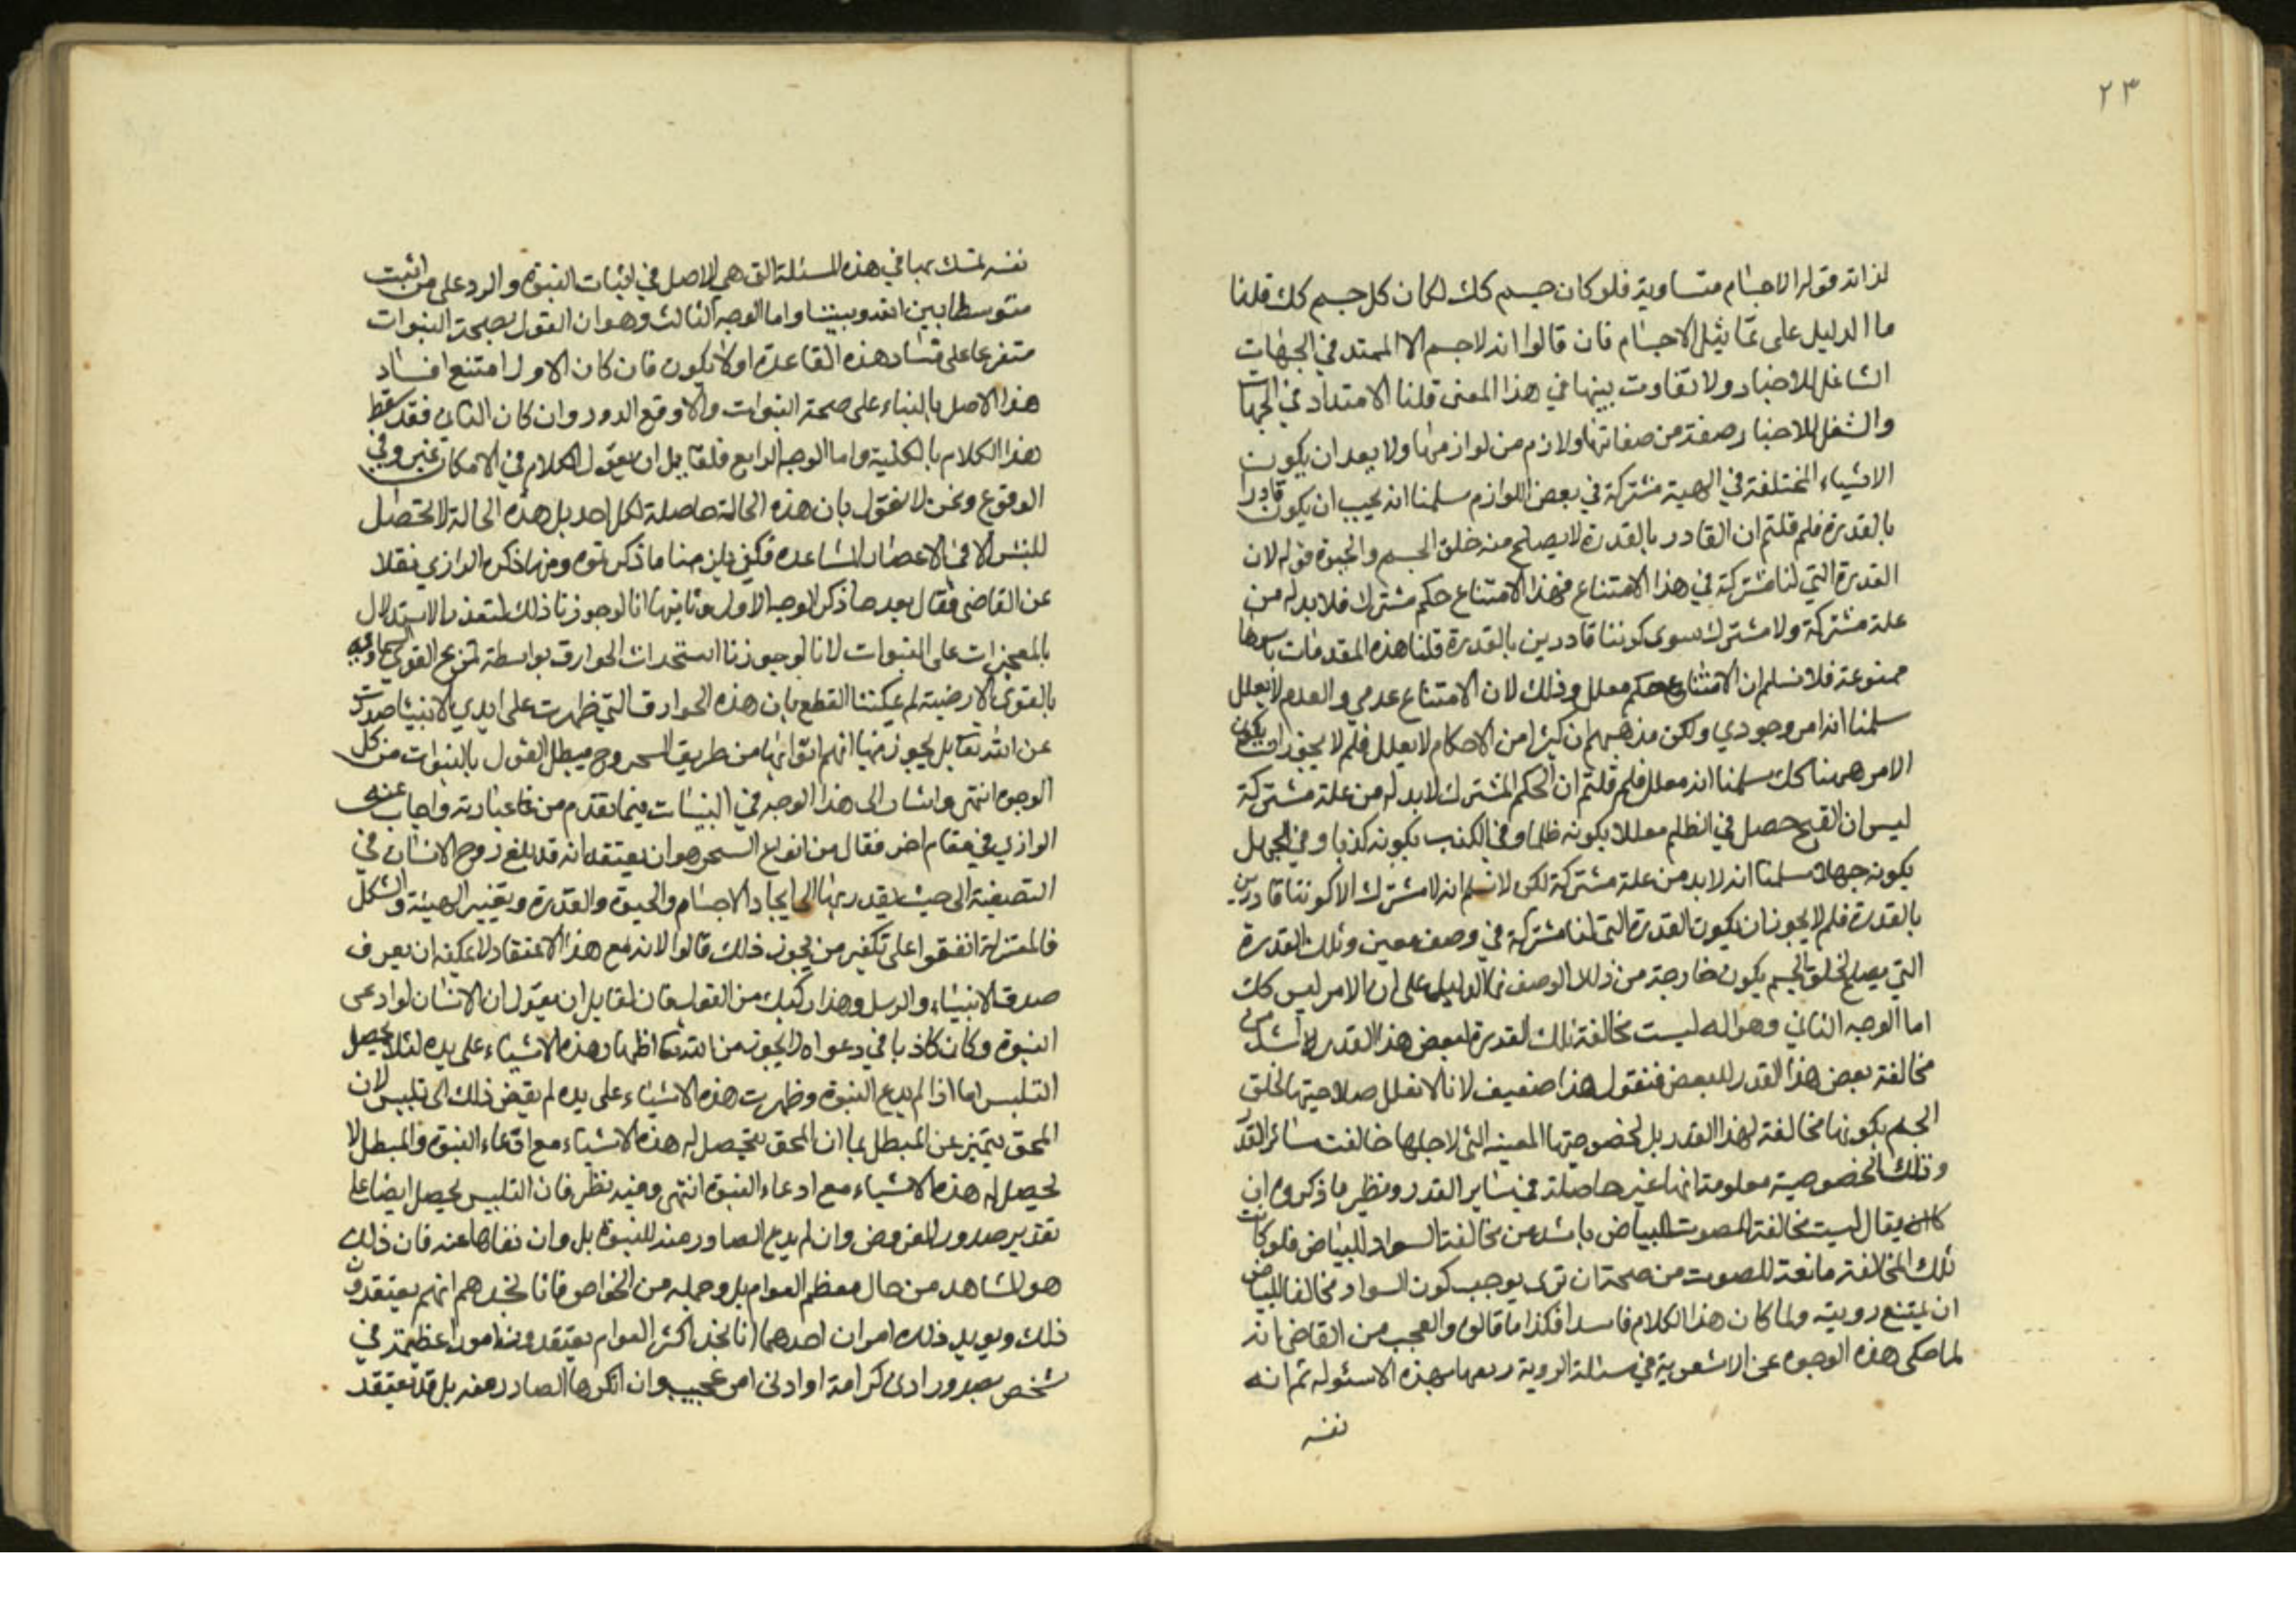 ٢٣
لذاته قوله الاجسام متساوية فلو كان جسم كك لكان كل جسم كك قلنا
ما الدليل على تماثيل الاجسام فان قالوا انه لا جسم الا الممتد في الجهات
الشاغل للاحياز ولا تفاوت بينها في هذا المعنى قلنا الامتداد في الجهات
والشغل للاحياز صفة من صفاتها ولازم من لوازمها ولا يبعد ان يكون
الاشياء المختلفة في المهية مشتركة في بعض اللوازم سلمنا انه يجب ان يكون قادرا
بالقدرة فلم قلتم ان القادر بالقدرة لا يصلح منه خلق الجسم والحيوة قوله لان
القدرة التي لنا مشتركة في هذا الامتناع فهذا الامتناع حكم مشترك فلا بد له من
علة مشتركة ولا مشترك سوى كوننا قادرين بالقدرة قلنا هذه المقدمات باسرها
ممنوعة فلا نسلم ان الامتناع حكم معلل وذلك لان الامتناع عدمي والعدم لا يعلل
سلمنا انه امر وجودي ولكن مذهبهم ان كثيرا من الاحكام لا يعلل فلم لا يجوز ان يكون
الامر ههنا كك سلمنا انه معلل فلم قلتم ان الحكم المشترك لا بد له من علة مشتركة
ليس ان القبح حصل في الظلم معللا بكونه ظلما وفي الكذب بكونه كذبا وفي الجهل
بكونه جهلا سلمنا انه لا بد من علة مشتركة لكن لا نسلم انه لا مشترك الا كوننا قادرين
بالقدرة فلم لا يجوز ان يكون القدرة التي لنا مشتركة في وصف معين وتلك القدرة
التي يصلح لخلق الجسم يكون خارجة من ذلك الوصف فما الدليل على ان الامر ليس كك
اما الوجه الثاني وهو انه ليست مخالفة تلك القدرة لبعض هذا القدر لا شد من
مخالفة بعض هذا القدر للبعض فنقول هذا ضعيف لانا لا نعلل صلاحيتها لخلق
الجسم بكونها مخالفة لهذا القدر بل لخصوصيتها المعينه التي لاجلها خالفت سائر القدر
وتلك الخصوصية معلومة انها غير حاصلة في سائر القدر ونظير ما ذكروه ان
يقال ليست مخالفة الصوت للبياض باشد من مخالفة السواد للبياض فلو كانت
تلك المخالفة مانعة للصوت من صحة ان ترى يوجب كون السواد مخالفا للبياض
ان يمتنع رويته ولما كان هذا الكلام فاسدا فكذا ما قالوه والعجب من القاضي انه
لما حكى هذه الوجوه عن الاشعرية في مسئلة الروية بهذه الاسئوله ثم انه
نفسه
نفسه تمسك بها في هذه المسئلة التي هي الاصل في اثبات النبوة والرد على من اثبت
متوسطا بين الله وبيننا واما الوجه الثالث وهو ان القول بصحة النبوات
متفرعا على فساد هذه القاعدة اولا يكون فان كان الاول امتنع افساد
هذا الاصل بالبناء على صحة النبوات والا وقع الدور وان كان الثاني فقد سقط
هذا الكلام بالكلية واما الوجه الرابع فلقايل ان يقول الكلام في الامكان غير وفي
الوقوع ونحن لا نقول بان هذه الحالة حاصلة لكل احد بل هذه الحالة لا تحصل
للبشر الا في الاعصار المتباعدة فكيف يلزمنا ما ذكرتموه ومنها ذكره الرازي نقلا
عن القاضي فقال بعد ما ذكر الوجه الاول وثانيها انا لو جوزنا ذلك لتعذر الاستدلال
بالمعجزات على النبوات لانا لو جوزنا استحداث الخوارق بواسطة تمزيج القوى السماوية
بالقوى الارضية لم يمكننا القطع بان هذه الخوارق التي ظهرت على ايدي الانبياء صدرت
عن الله تعا بل يجوز فيها انهم اتوا بها من طريق السحر وح يبطل القول بالنبوات من كل
الوجوه انتهى واشار الى هذا الوجه في فيما تقدم من عبارته واجاب عنه
الرازي في مقام اخر فقال من انواع السحر هو ان يعتقد انه قد يبلغ روح الانسان في
التصفية الى حيث يقدر بها الى ايجاد الاجسام والحيوة والقدرة وتغيير الهيئة والشكل
فالمعتزلة اتفقوا على تكفير من يجوز ذلك قالوا لانه مع هذا الاعتقاد لا يمكنه ان يعرف
صدق الانبياء والرسل وهذا ركيك من القول فان لقايل ان يقول ان الانسان لو ادعى
النبوة وكان كاذبا في دعواه لا يجوز من الله تعا اظهار هذه الاشياء على يده لئلا يحصل
التلبس اما اذا لم يدع النبوة وظهرت هذه الاشياء على يده لم يفض ذلك الى تلبيس لان
المحق يتميز عن المبطل بما ان المحق يتحصل له هذه الاشياء مع ادعاء النبوة والمبطل لا
يحصل له هذه الاشياء مع ادعاء النبوة انتهى وفيه نظر فان التلبيس يحصل ايضا على
تقدير صدور المفروض وان لم يدع الصادر منه للنبوة بل وان نفاها عنه فان ذلك
هو المشاهد من حال معظم العوام بل وجمله من الخواص فانا نجدهم انهم يعتقدون
ذلك ويويد ذلك امران احدهما انا نجد اكثر العوام يعتقدون امورا عظيمة في
شخص بصدور ادنى كرامة او ادنى امر عجيب وان انكرها الصادر منه بل قد تعتقد